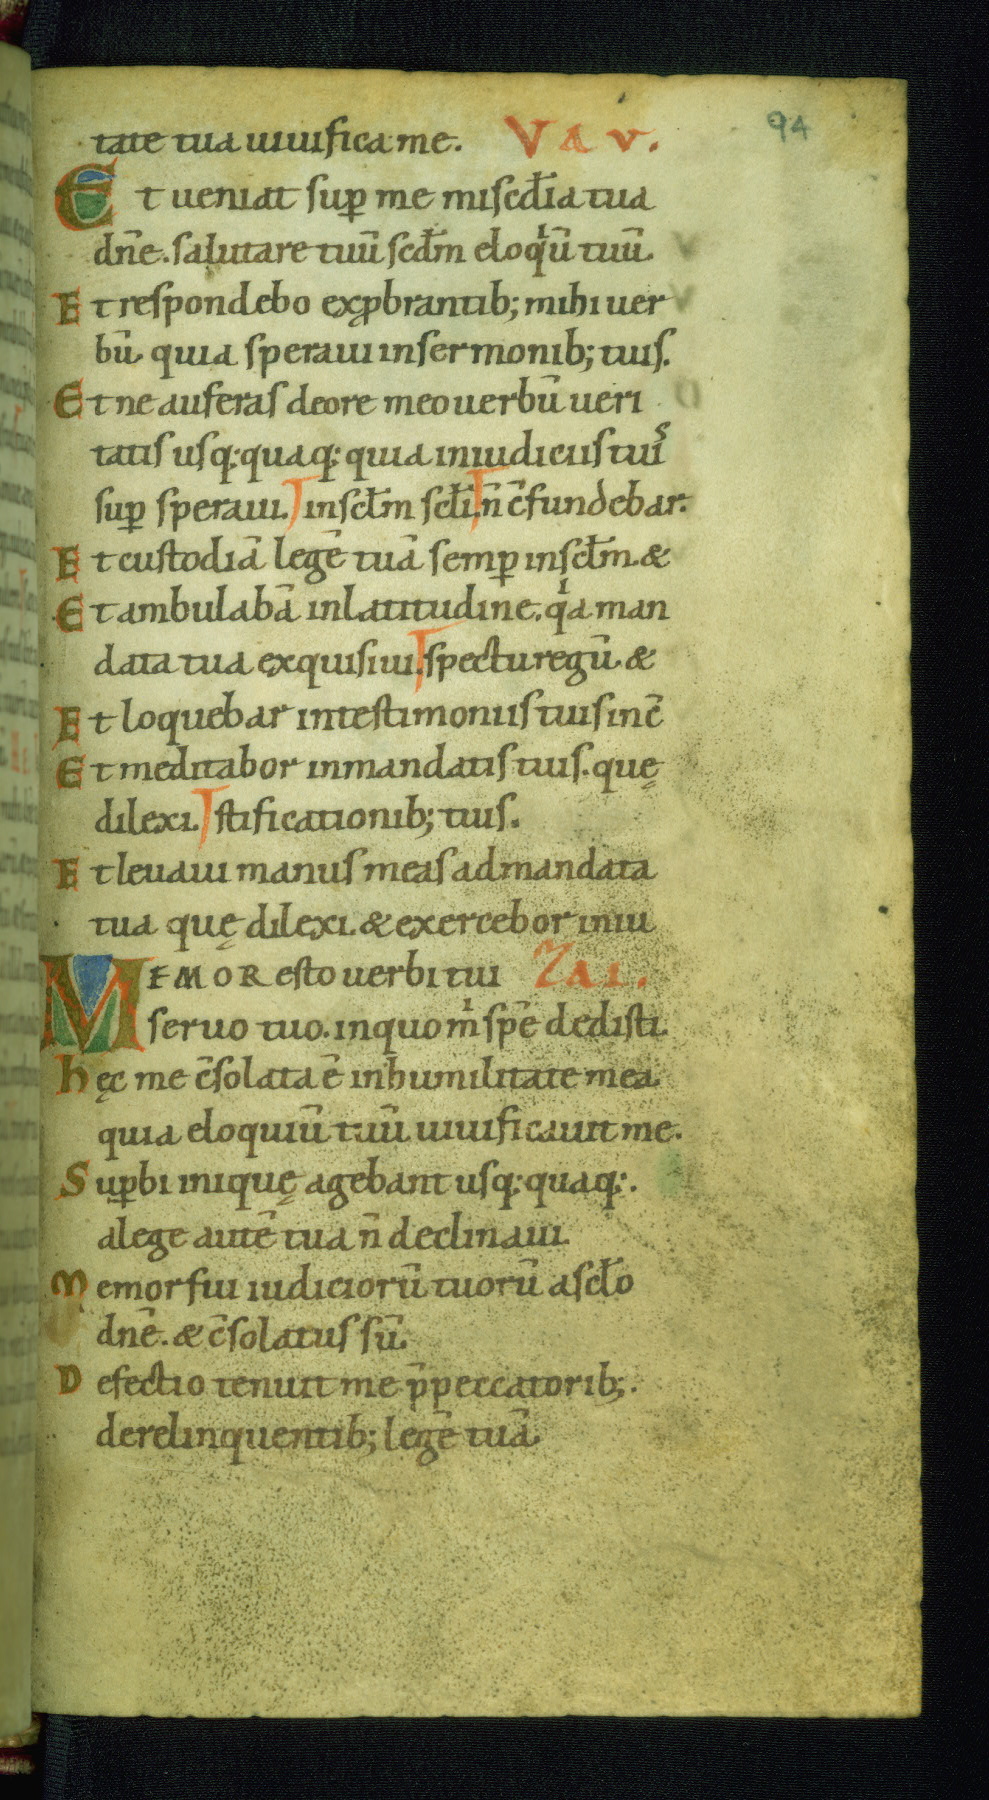 94
tate tua uiuifica me. VAV.
Et ueniat sup̱ me misc̄dia tua
dn̄e. salutare tuū sc̄dm eloqͥū tuū.
Et respondebo exp̱brantib; mihi uer
bū. quia speraui in sermonib; tuis.
Et ne auferas de ore meo uerbū ueri
tatis usq; quaq; quia in iudiciis tuis
sup̱ speraui. in sc̄lm sc̄li. n̄ c̄fundebar.
Et custodiā legē tuā semp̱ in sc̄lm. &
Et ambulabā in latitudine. qͥa man
data tua exquisiui. spectu regū. &
Et loquebar in testimoniis tuis in c̄
Et meditabor in mandatis tuis. quę
dilexi. stificationib; tuis.
Et leuaui manus meas ad mandata
tua quę dilexi. & exercebor in iu
MEMOR esto uerbi tui ZAI.
seruo tuo. in quo mͥ spē dedisti.
hęc me c̄solata ē in humilitate mea.
quia eloquiū tuū uiuificauit me.
Sup̱bi inique̜ agebant usq; quaq;.
a lege autē tua n̄ declinaui.
Memor fui iudiciorū tuorū a sc̄lo
dn̄e. & c̄solatus sū.
Defectio tenuit me p̄ peccatorib;.
derelinquentib; legē tuā.